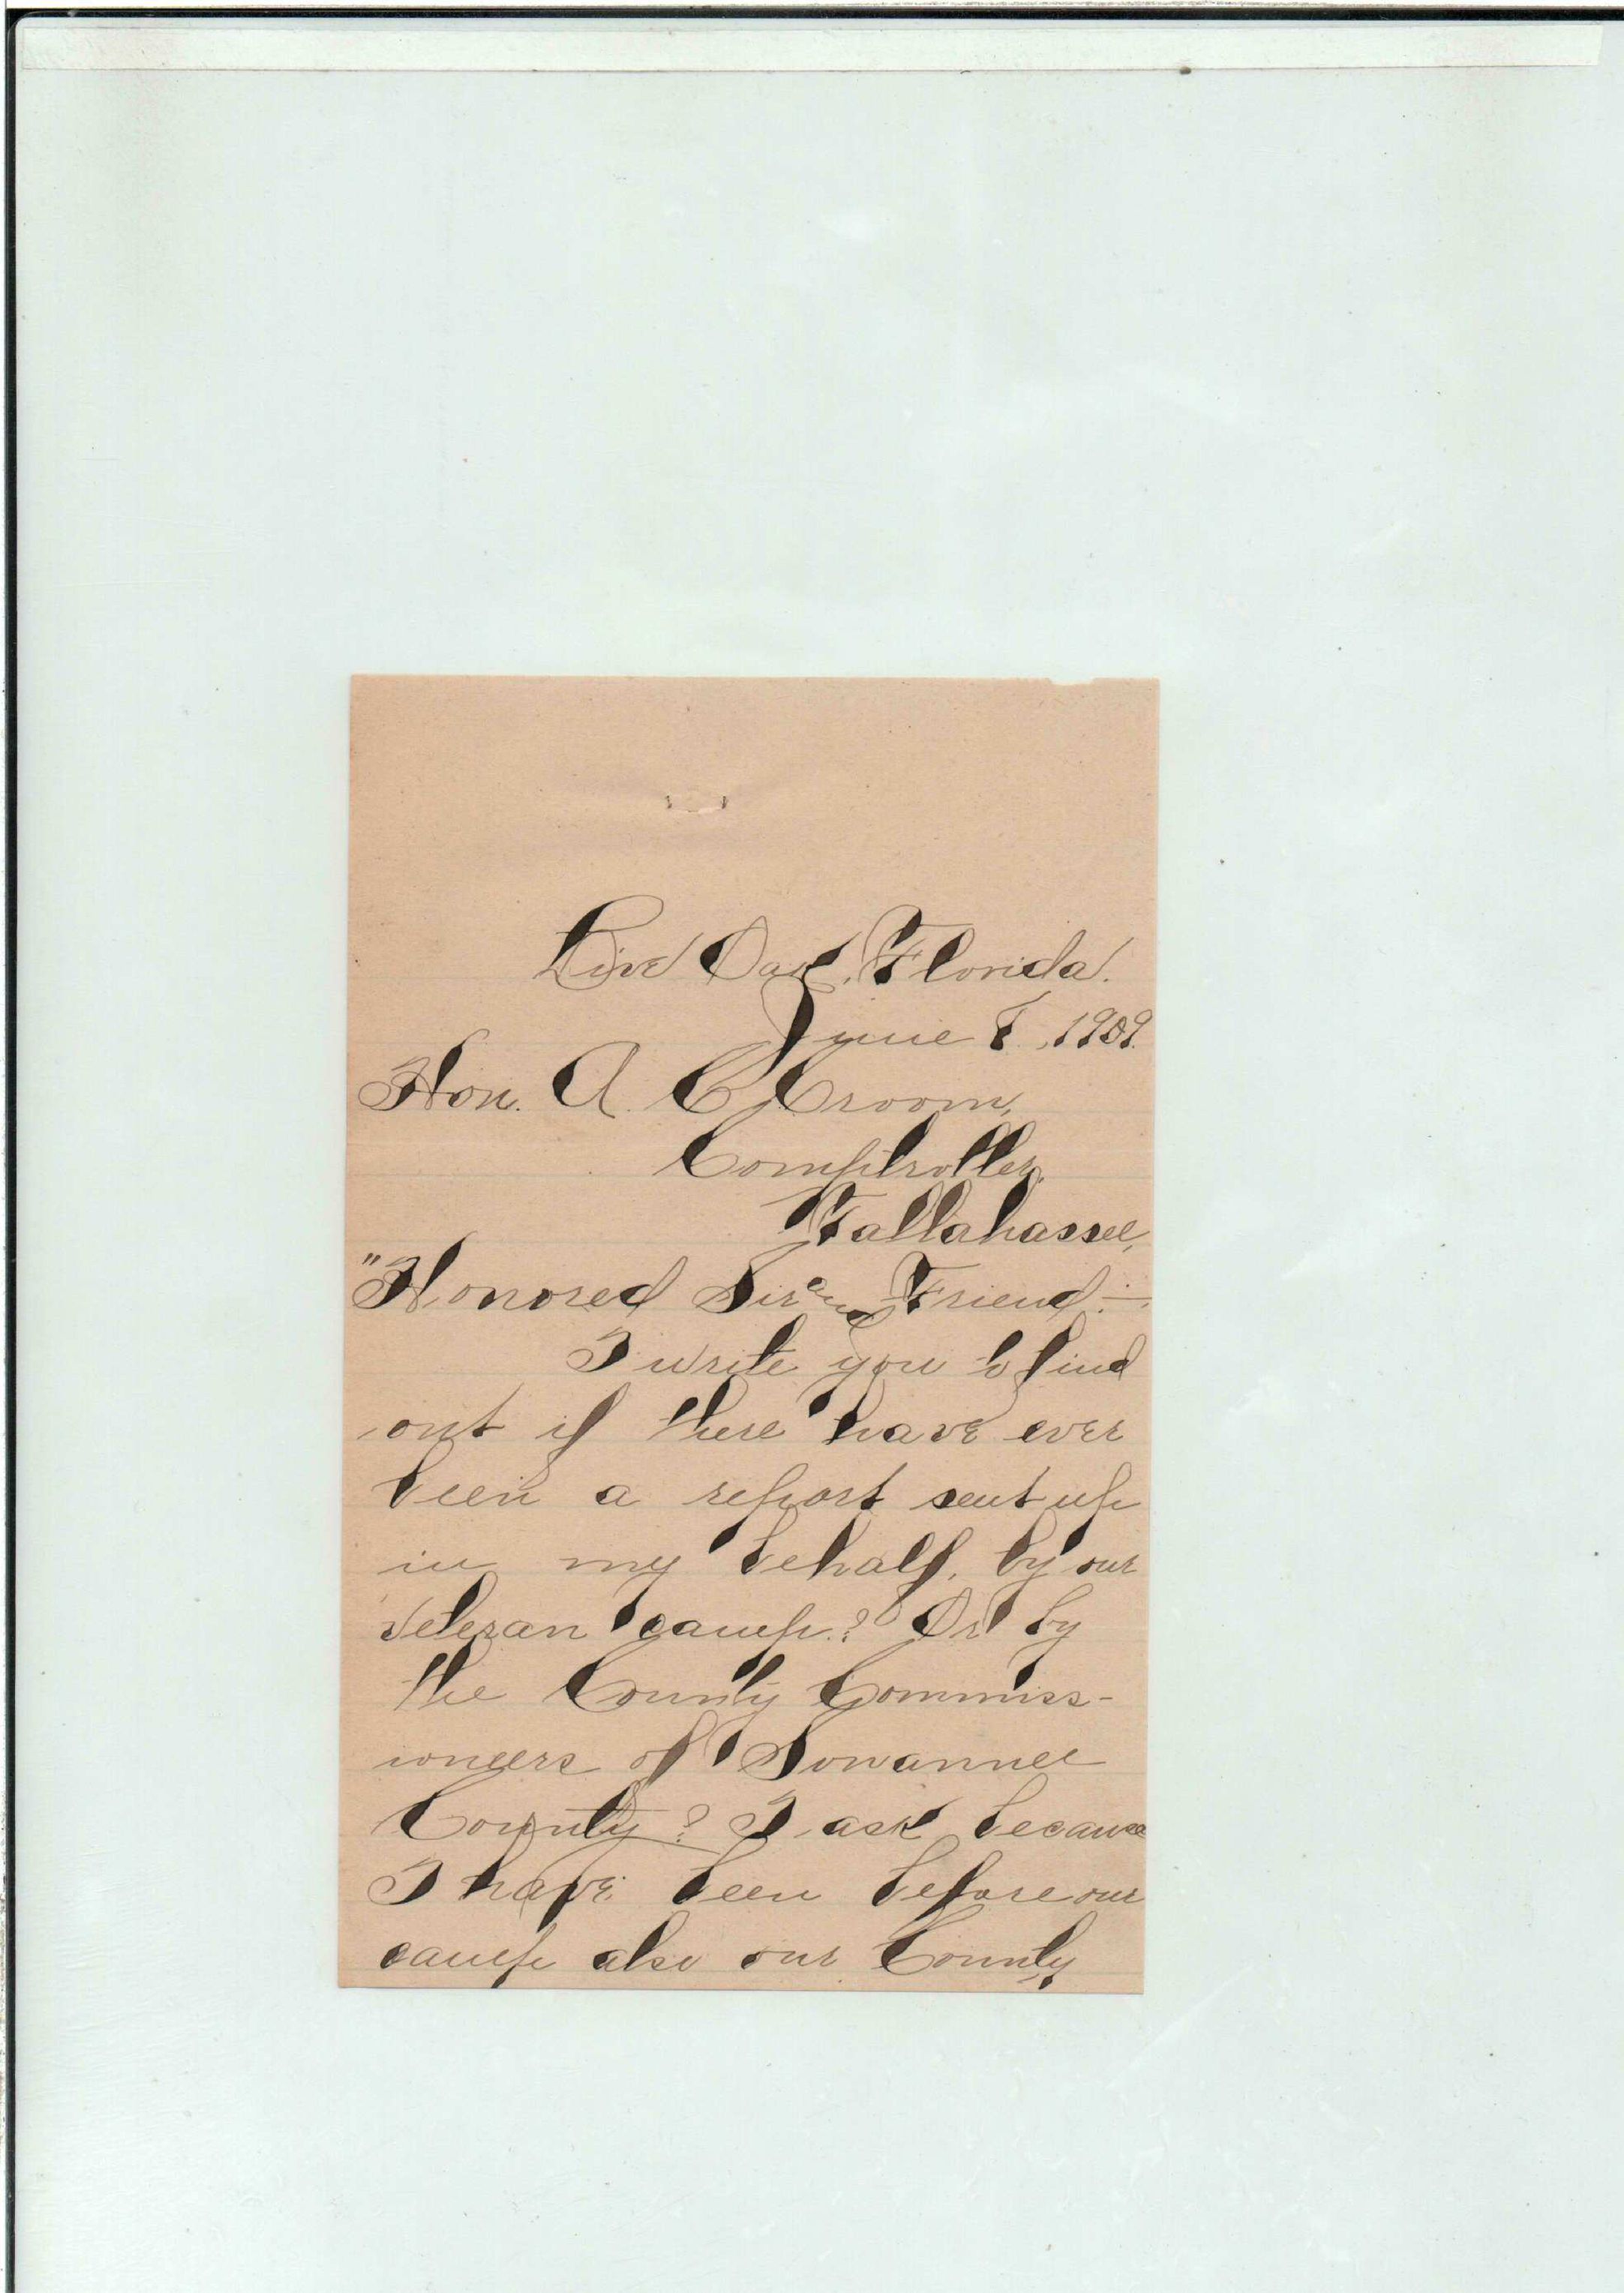 Live Oak, Florida.
June 8, 1909.
Hon. A C Croom,
Comptroller,
Tallahassee,
"Honored Sir and Friend:—
I write you to find
out if there have ever
been a report sent up
in my behalf, by our
veteran camp? Or by
the County Commiss-
ioneers of Suwannee
County? I ask because
I have been before our
camp also our County